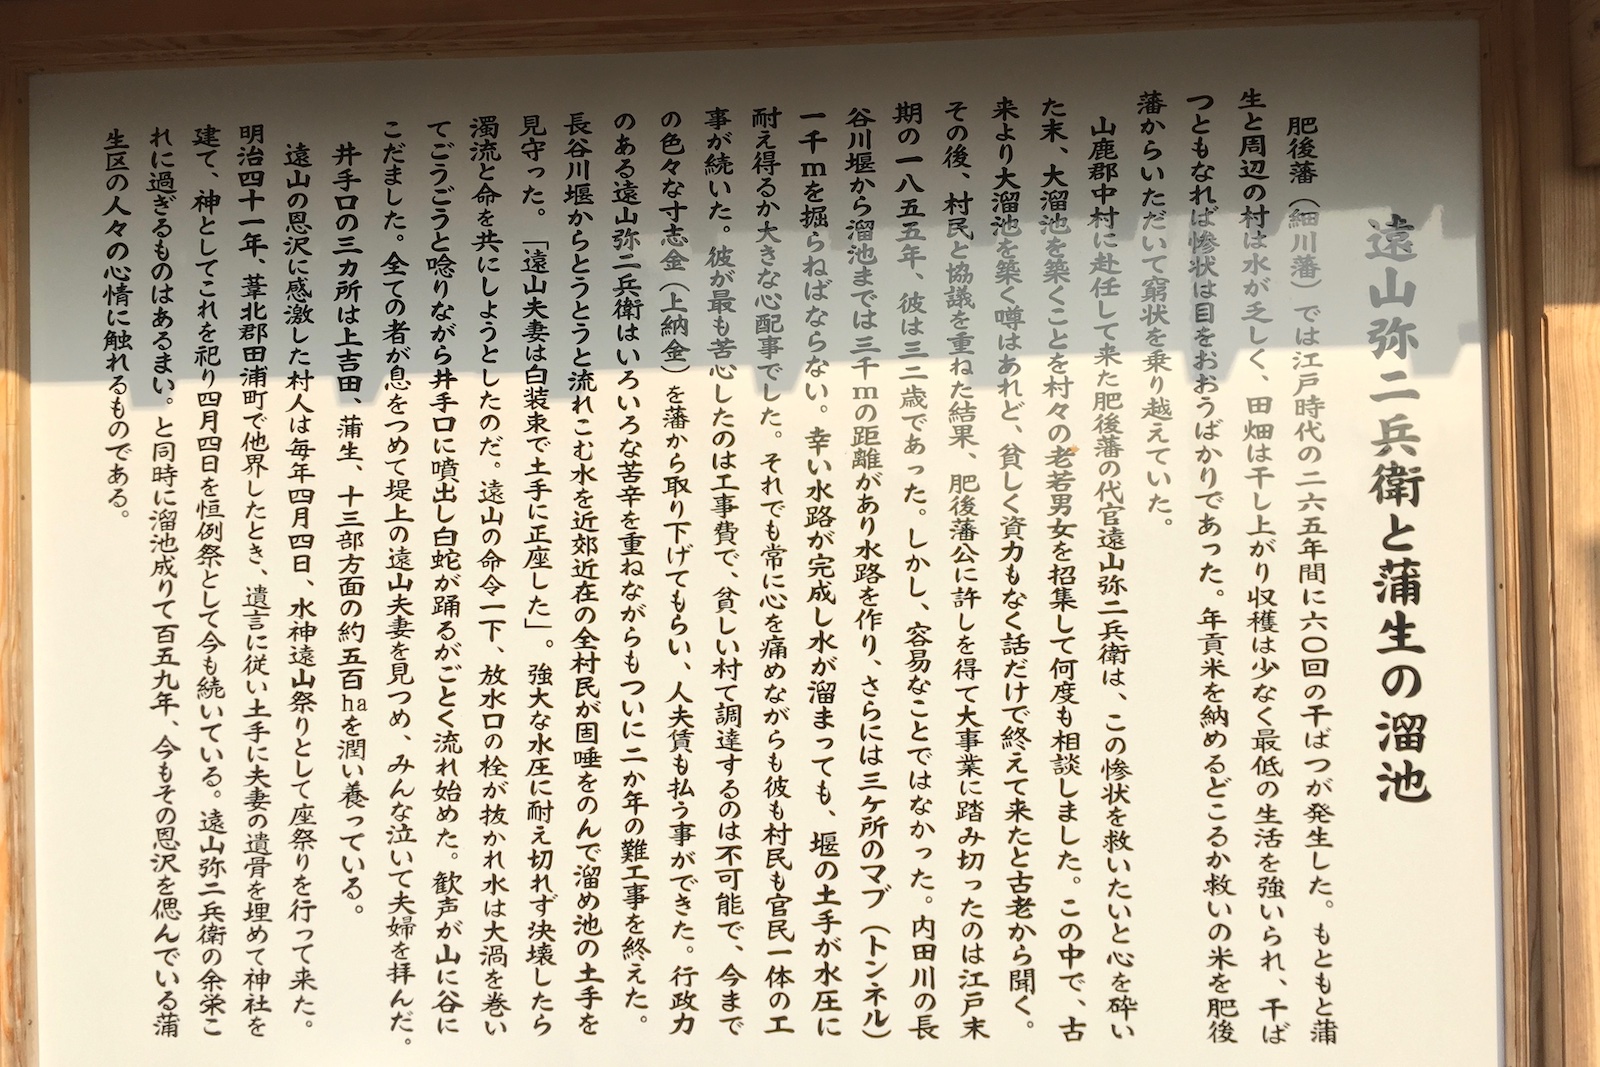 遠山弥二兵衛と蒲生の溜池
肥後藩（細川藩）では江戸時代の二六五年間に六〇回の干ばつが発生した。もともと蒲
生と周辺の村は水が乏しく、田畑は干し上がり収穫は少なく最低の生活を強いられ、干ば
つともなれば惨状は目をおおうばかりであった。年貢米を納めるどころか救いの米を肥後
藩からいただいて窮状を乗り越えていた。
山鹿郡中村に赴任して来た肥後藩の代官遠山弥二兵衛は、この惨状を救いたいと心を砕い
た末、大溜池を築くことを村々の老若男女を招集して何度も相談しました。この中で、古
来より大溜池を築く噂はあれど、貧しく資力もなく話だけで終えて来たと古老から聞く。
その後、村民と協議を重ねた結果、肥後藩公に許しを得て大事業に踏み切ったのは江戸末
期の一八五五年、彼は三二歳であった。しかし、容易なことではなかった。内田川の長
谷川堰から溜池までは三千ｍの距離があり水路を作り、さらには三ヶ所のマブ（トンネル）
一千ｍを掘らねばならない。幸い水路が完成し水が溜まっても、堰の土手が水圧に
耐え得るか大きな心配事でした。それでも常に心を痛めながらも彼も村民も官民一体の工
事が続いた。彼が最も苦心したのは工事費で、貧しい村で調達するのは不可能で、今まで
の色々な寸志金（上納金）を藩から取り下げてもらい、人夫賃も払う事ができた。行政力
のある遠山弥二兵衛はいろいろな苦辛を重ねながらもついに二か年の難工事を終えた。
長谷川堰からとうとうと流れこむ水を近郊近在の全村民が固唾をのんで溜め池の土手を
見守った。「遠山夫妻は白装束で土手に正座した」。強大な水圧に耐え切れず決壊したら
濁流と命を共にしようとしたのだ。遠山の命令一下、放水口の栓が抜かれ水は大渦を巻い
てごうごうと唸りながら井手口に噴出し白蛇が踊るがごとく流れ始めた。歓声が山に谷に
こだました。全ての者が息をつめて堤上の遠山夫妻を見つめ、みんな泣いて夫婦を拝んだ。
井手口の三カ所は上吉田、蒲生、十三部方面の約五百haを潤い養っている。
遠山の恩沢に感激した村人は毎年四月四日、水神遠山祭りとして座祭りを行って来た。
明治四十一年、葦北郡田浦町で他界したとき、遺言に従い土手に夫妻の遺骨を埋めて神社を
建て、神としてこれを祀り四月四日を恒例祭として今も続いている。遠山弥二兵衛の余栄こ
れに過ぎるものはあるまい。と同時に溜池成りて百五九年、今もその恩沢を偲んでいる蒲
生区の人々の心情に触れるものである。